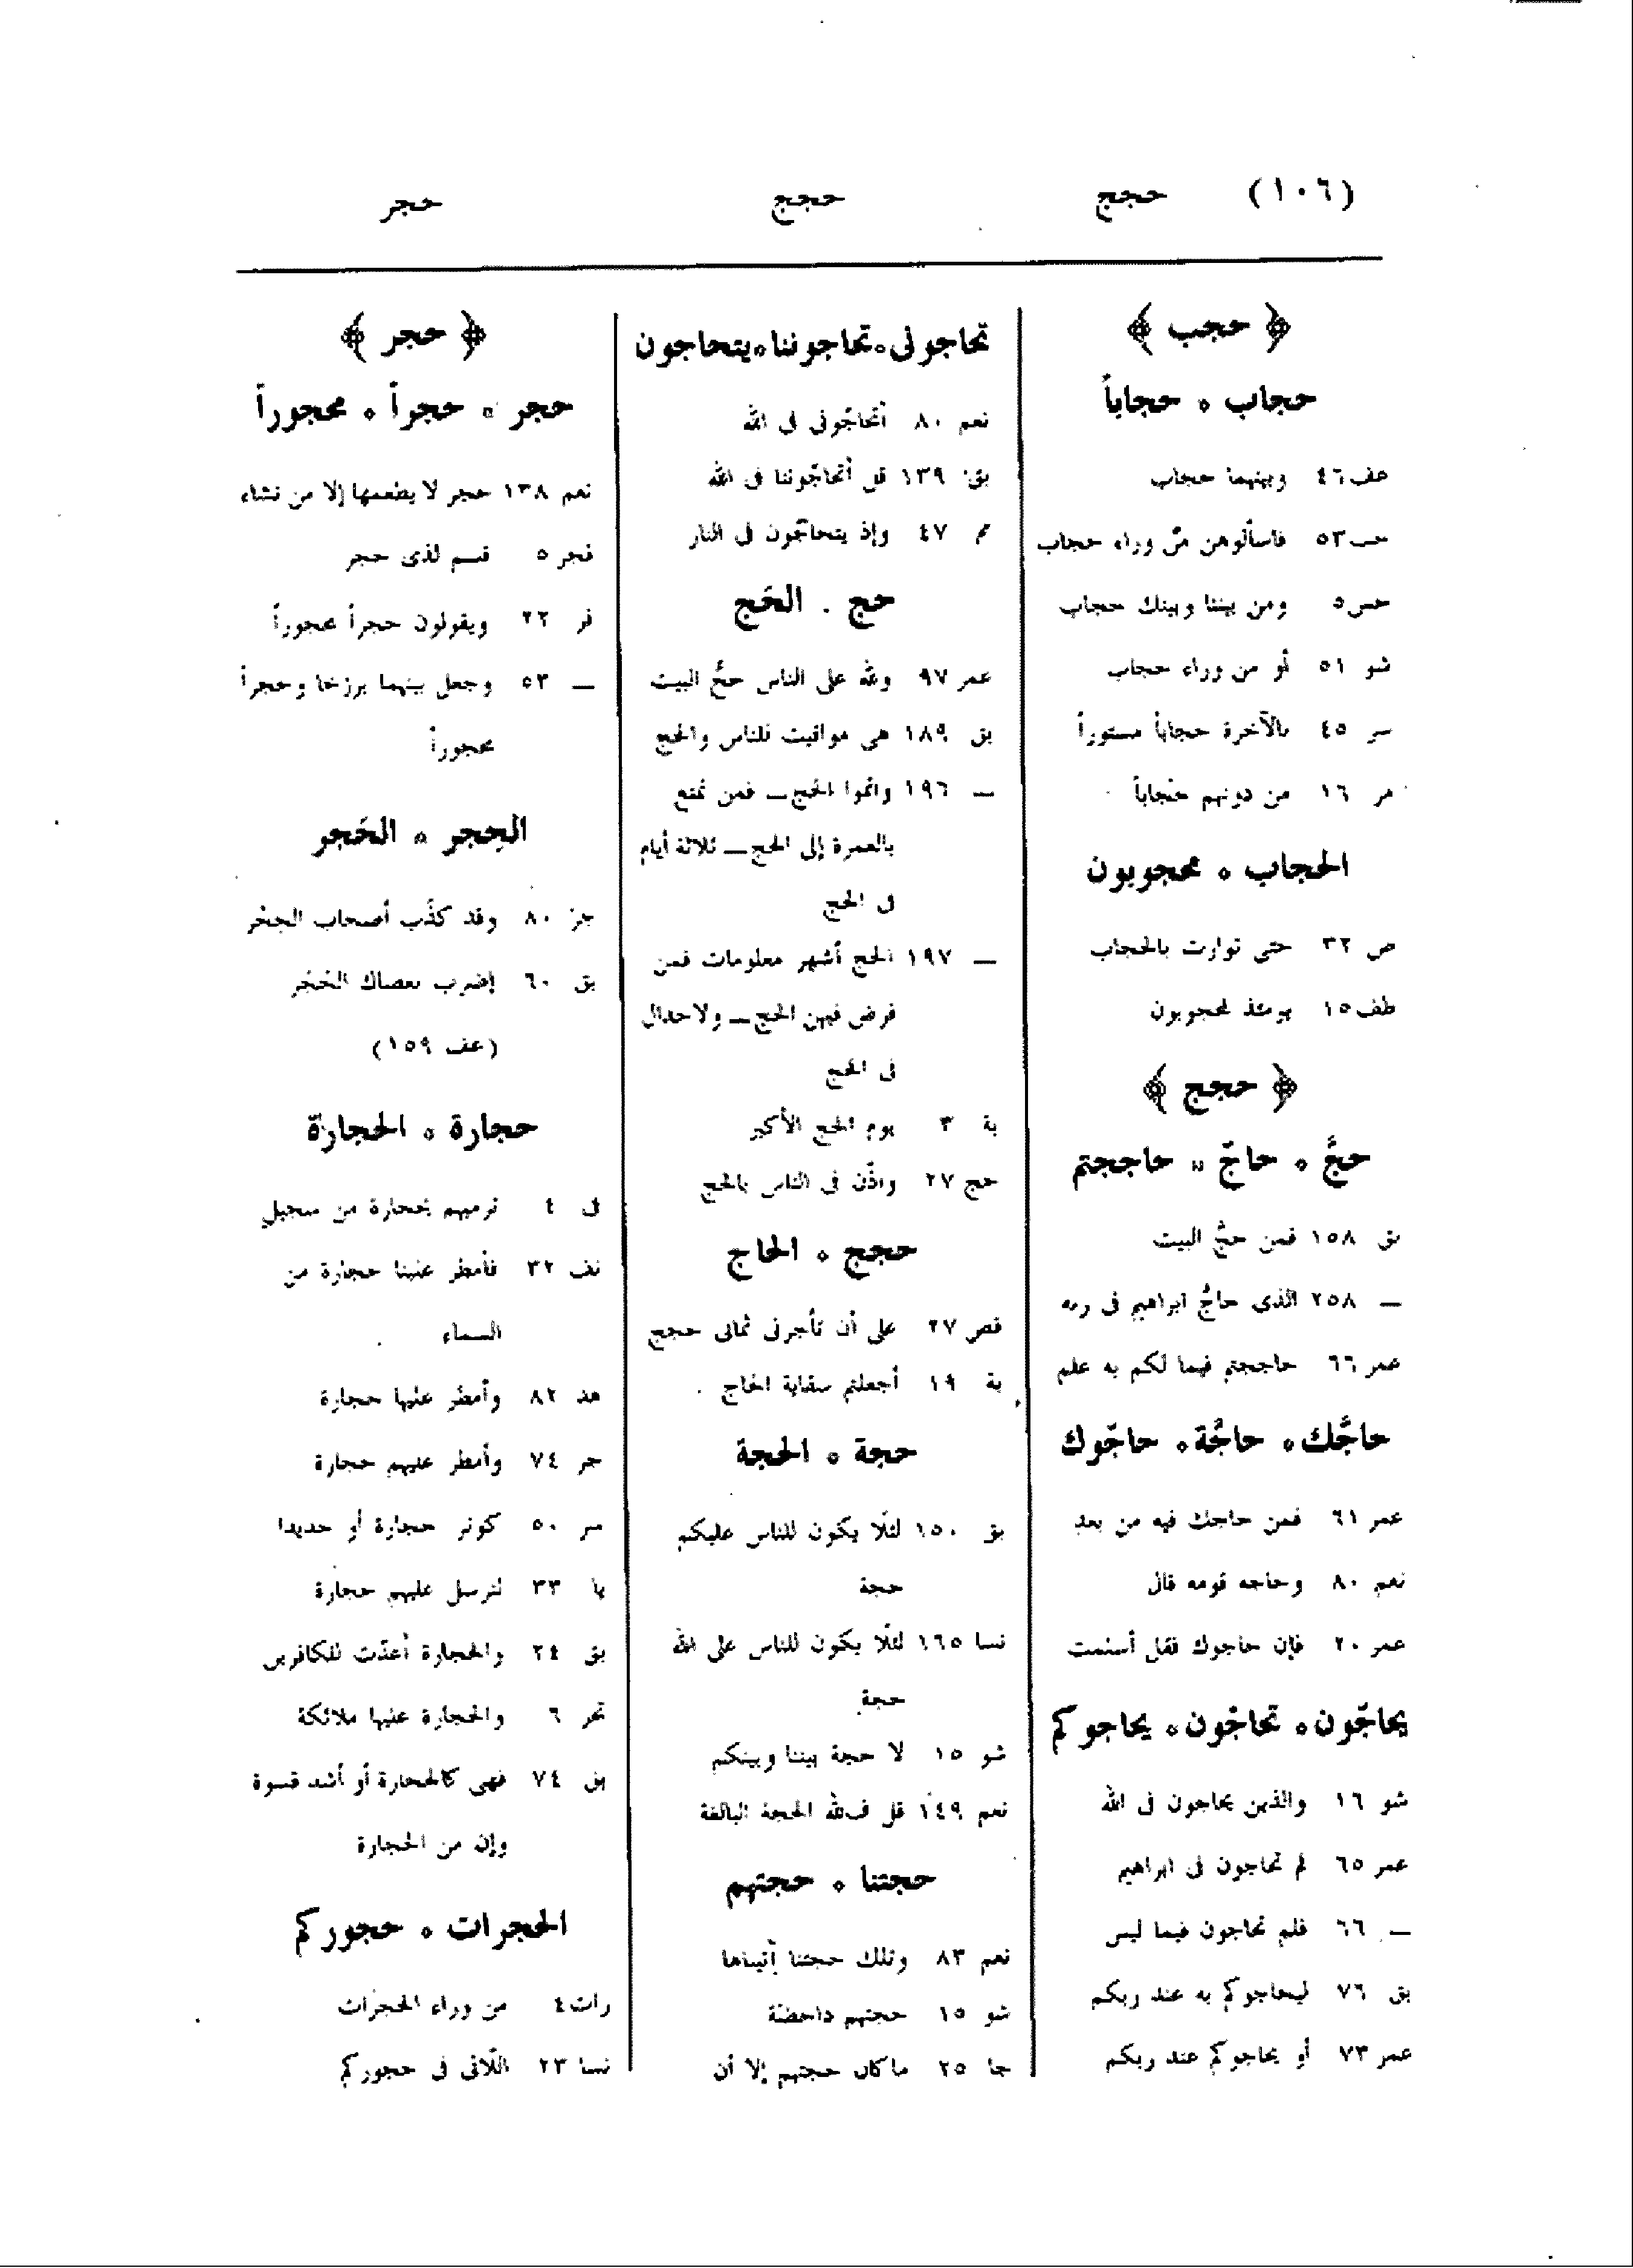 (١٠٦) حجج حجج حجر
﴿ حجب ﴾
حجاب ٥ حجاباً
عف ٤٦ وبينهما حجاب
حب ٥٣ فاسألوهن من وراء حجاب
حس ٥ ومن بيننا وبينك حجاب
شو ٥١ أو من وراء حجاب
سر ٤٥ بالآخرة حجاباً مستوراً
مر ١٦ من دونهم حجاباً
الحجاب ٥ محجوبون
ص ٣٢ حتى توارت بالحجاب
طف ١٥ يومئذ لمحجوبون
﴿ حجج ﴾
حجَّ ٥ حاجّ ٥ حاججتم
بق ١٥٨ فمن حجَّ البيت
ــ ٢٥٨ الذى حاجَّ ابراهيم فى ربه
عمر ٦٦ حاججتم فيما لكم به علم
حاجَّك ٥ حاجَّة ٥ حاجّوك
عمر ٦١ فمن حاجك فيه من بعد
نعم ٨٠ وحاجه قومه قال
عمر ٢٠ فإن حاجوك فقل أسلمت
يحاجّون ٥ تحاجّون ٥ يحاجوكم
شو ١٦ والذين يحاجون فى الله
عمر ٦٥ لم تحاجون فى ابراهيم
ــ ٦٦ فلم تحاجون فيما ليس
بق ٧٦ ليحاجوكم به عند ربكم
عمر ٧٣ أو يحاجوكم عند ربكم
تحاجونى ٥ تحاجوننا ٥ يتحاجون
نعم ٨٠ أتحاجّونى فى الله
بق ١٣٩ قل أتحاجّوننا فى الله
مم ٤٧ وإذ يتحاجّون فى النار
حج . الحَج
عمر ٩٧ ولله على الناس حجُّ البيت
بق ١٨٩ هى مواقيت للناس والحج
ــ ١٩٦ وأتموا الحج ــ فمن تمتع
بالعمرة إلى الحج ــ ثلاثة أيام
فى الحج
ــ ١٩٧ الحج أشهر معلومات فمن
فرض فيهن الحج ــ ولا جدال
فى الحج
بة ٣ يوم الحج الأكبر
حج ٢٧ وأذّن فى الناس بالحج
حجج ٥ الحاج
قصر ٢٧ على أن تأجرنى ثمانى حجج
بة ١٩ أجعلتم سقاية الحاج
حجة ٥ الحجة
بق ١٥٠ لئلّا يكون للناس عليكم
حجة
نسا ١٦٥ لئلّا يكون للناس على الله
حجة
شو ١٥ لا حجة بيننا وبينكم
نعم ١٤٩ قل فلله الحجة البالغة
حجتنا ٥ حجتهم
نعم ٨٣ وتلك حجتنا آتيناها
شو ١٥ حجتهم داحضة
جا ٢٥ ما كان حجتهم إلا أن
﴿ حجر ﴾
حجر ٥ حجراً ٥ محجوراً
نعم ١٣٨ حجر لا يطعمها إلا من نشاء
فجر ٥ قسم لذى حجر
فر ٢٢ ويقولون حجراً محجوراً
ــ ٥٣ وجعل بينهما برزخا وحجراً
محجوراً
الحِجر ٥ الحَجر
جز ٨٠ وقد كذّب أصحاب الحِجْر
بق ٦٠ إضرب بعصاك الحَجَر
(عف ١٥٩)
حجارة ٥ الحجارة
فى ٤ ترميهم بحجارة من سجيل
نف ٣٢ فأمطر علينا حجارة من
السماء
هد ٨٢ وأمطر عليها حجارة
جر ٧٤ وأمطر عليهم حجارة
سر ٥٠ كونو حجارة أو حديدا
يا ٣٣ لنرسل عليهم حجارة
بق ٢٤ والحجارة أعدّت للكافرين
تحر ٦ والحجارة عليها ملائكة
بق ٧٤ فهى كالحجارة أو أشد قسوة
وإن من الحجارة
الحجرات ٥ حجوركم
رات ٤ من وراء الحجرات
نسا ٢٣ اللّاتى فى حجوركم